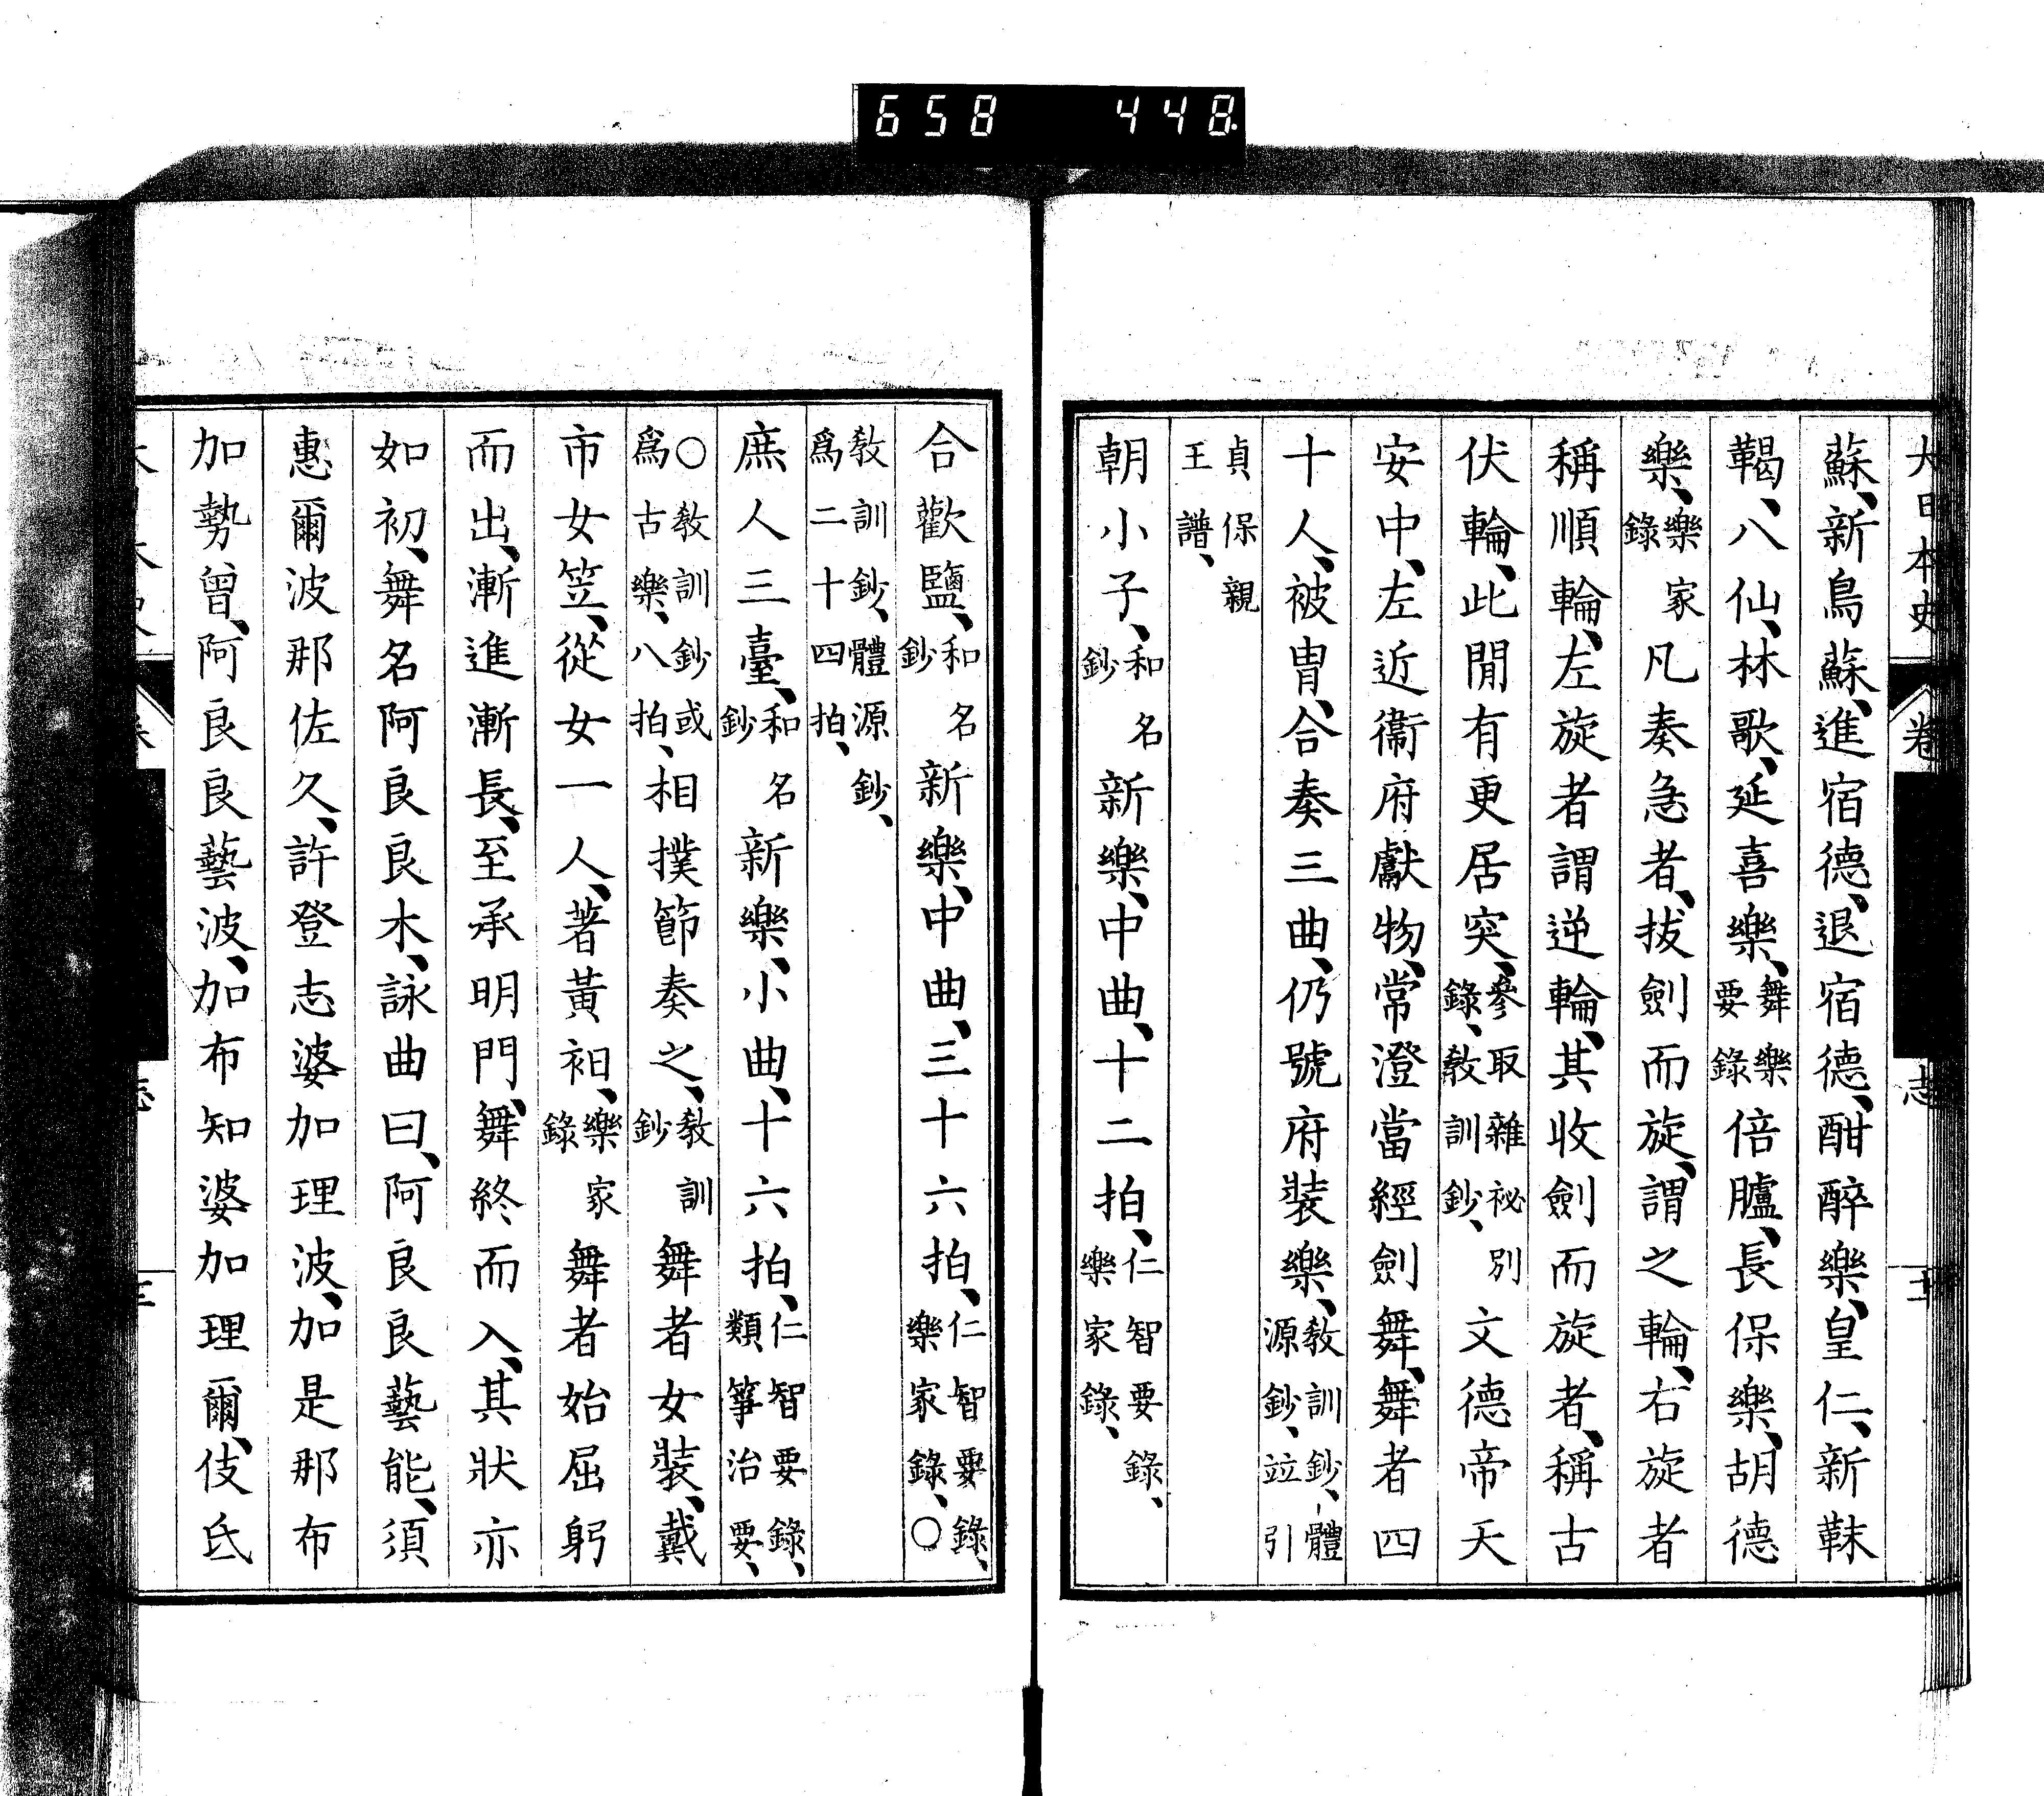 658 448.
大日本史 卷 志
蘇、新鳥蘇、進宿德、退宿德、酣醉樂、皇仁、新靺
鞨、八仙、林歌、延喜樂、舞樂要錄倍臚、長保樂、胡德
樂、樂家錄凡奏急者、拔劍而旋、謂之輪、右旋者
稱順輪、左旋者謂逆輪、其收劍而旋者、稱古
伏輪、此閒有更居突、參取雜祕別錄、敎訓鈔、文德帝天
安中、左近衞府獻物、常澄當經劍舞、舞者四
十人、被冑、合奏三曲、仍號府裝樂、敎訓鈔、體源鈔、竝引
貞保親王譜、
朝小子、和名鈔新樂、中曲、十二拍、仁智要錄、樂家錄、
合歡鹽、和名鈔新樂、中曲、三十六拍、仁智要錄、樂家錄、○
敎訓鈔、體源鈔、爲二十四拍、
庶人三臺、和名鈔新樂、小曲、十六拍、仁智要錄、類箏治要、
○敎訓鈔或爲古樂、八拍、相撲節奏之、敎訓鈔舞者女裝、戴
市女笠、從女一人、著黃衵、樂家錄舞者始屈躬
而出、漸進漸長、至承明門、舞終而入、其狀亦
如初、舞名阿良良木、詠曲曰、阿良良藝能、須
惠爾波那佐久、許登志婆加理波、加是那布
加勢曾、阿良良藝波、加布知婆加理爾、伎氐